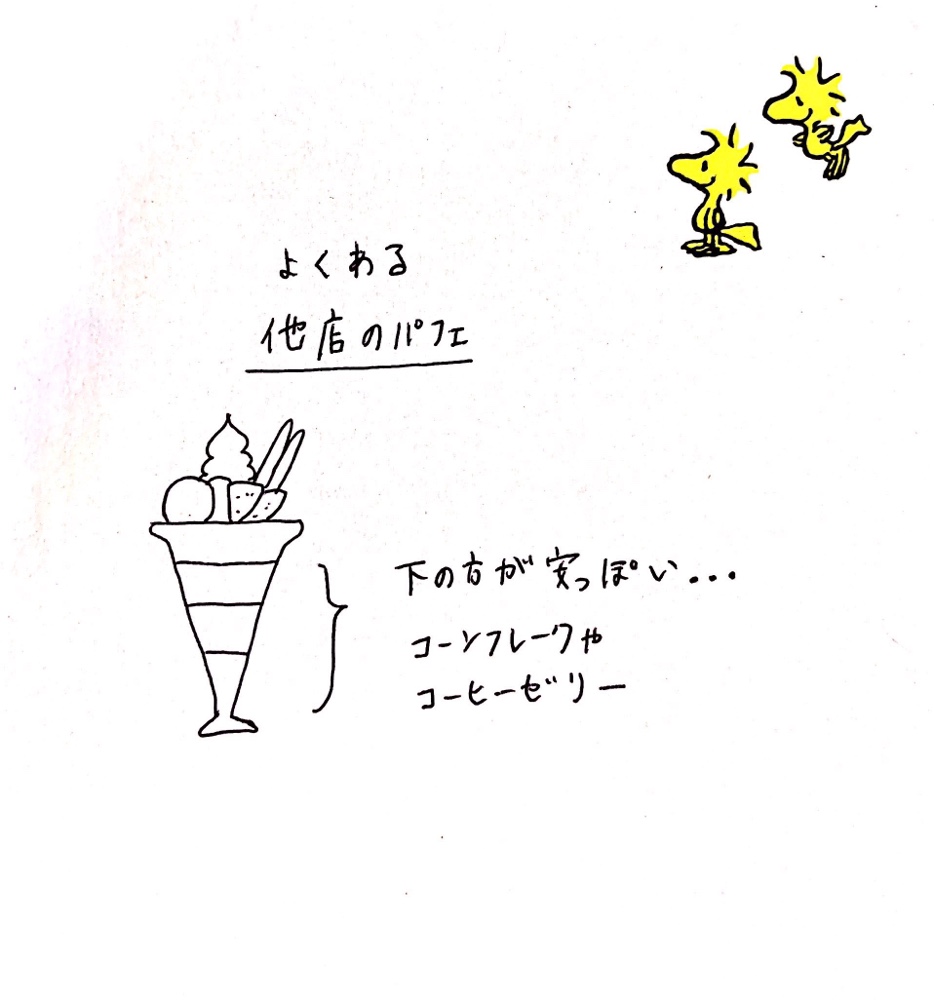 よくある
他店のパフェ
下の方が安っぽい...
コーンフレークや
コーヒーゼリー